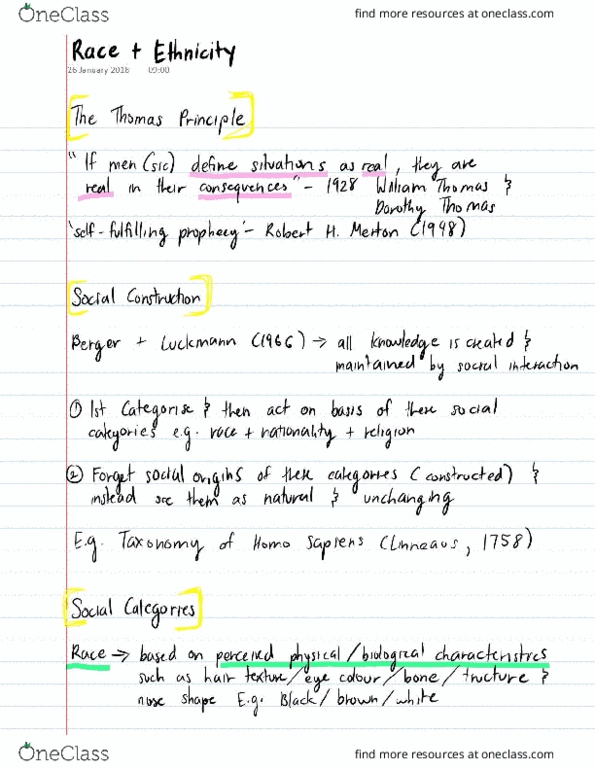 OneClass find more resources at oneclass.com
Race + Ethnicity
26 January 2018 09:00
The Thomas Principle
"If men (sic) define situations as real, they are
real in their consequences" - 1928 William Thomas &
Dorothy Thomas
'self-fulfilling prophecy' - Robert H. Merton (1948)
Social Construction
Berger + Luckmann (1966) → all knowledge is created &
maintained by social interaction
① 1st Categorise & then act on basis of these social
categories e.g. race + nationality + religion
② Forget social origins of these categories (constructed) &
instead see them as natural & unchanging
E.g. Taxonomy of Homo Sapiens (Linneaus, 1758)
Social Categories
Race → based on perceived physical/biological characteristics
such as hair texture/eye colour/bone/tructure &
nose shape E.g. Black/brown/white
OneClass find more resources at oneclass.com